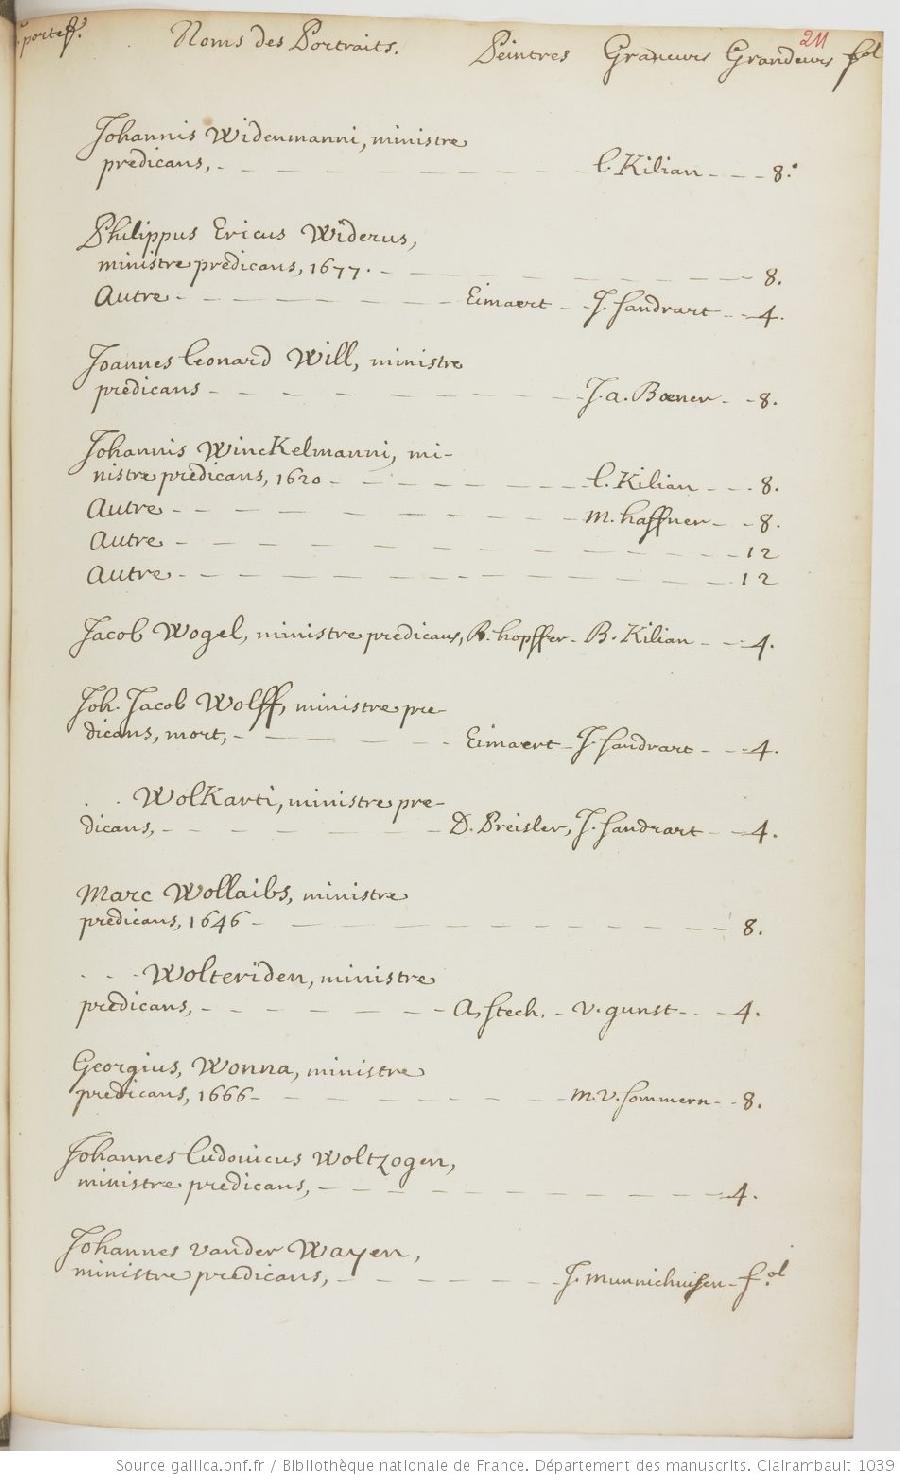 portef. Noms des Portraits. Peintres Graveurs Grandeurs fol
211
Johannis Widenmanni, ministre
prédicans, - - - - L. Kilian - - - 8.°
Philippus Ericus Widerus,
ministre prédicans, 1677. - - - - 8.
Autre - - - - Eimaert - J. Sandrart - - 4.
Joannes Leonard Will, ministre
prédicans - - - - J. a. Boener - - 8.
Johannis Winckelmanni, mi-
nistre prédicans, 1620 - - - - L. Kilian - - - 8.
Autre - - - - M. haffner - - 8.
Autre - - - - 12
Autre - - - - 12
Jacob Wogel, ministre prédicans, B. hopffer - B. Kilian - - - 4.
Joh. Jacob Wolff, ministre pre-
dicans, mort, - - - - Eimaert - J. Sandrart - - - 4.
. . Wolkarti, ministre pre-
dicans, - - - - D. Preisler, J. Sandrart - - 4.
Marc Wollaibs, ministre
prédicans, 1646 - - - - 8.
- - - Wolteriden, ministre
prédicans, - - - - A. Stech. - V. gunst - - - 4.
Georgius, Wonna, ministre
prédicans, 1666 - - - - M. V. Sommern - - 8.
Johannes Ludovicus Woltzogen,
ministre prédicans, - - - - 4.
Johannes vander Wayen,
ministre prédicans, - - - - J. Munnichuisen - f.ol
Source gallica.bnf.fr / Bibliothèque nationale de France. Département des manuscrits. Clairambault 1039